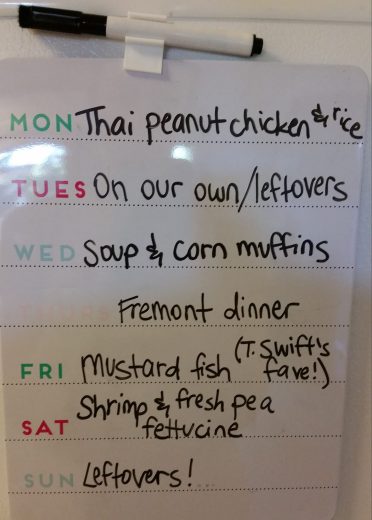 MON Thai peanut chicken & rice
TUES On our own/leftovers
WED Soup & corn muffins
THURS Fremont dinner
FRI Mustard fish (T. Swift's fave!)
SAT Shrimp & fresh pea
fettucine
SUN Leftovers!